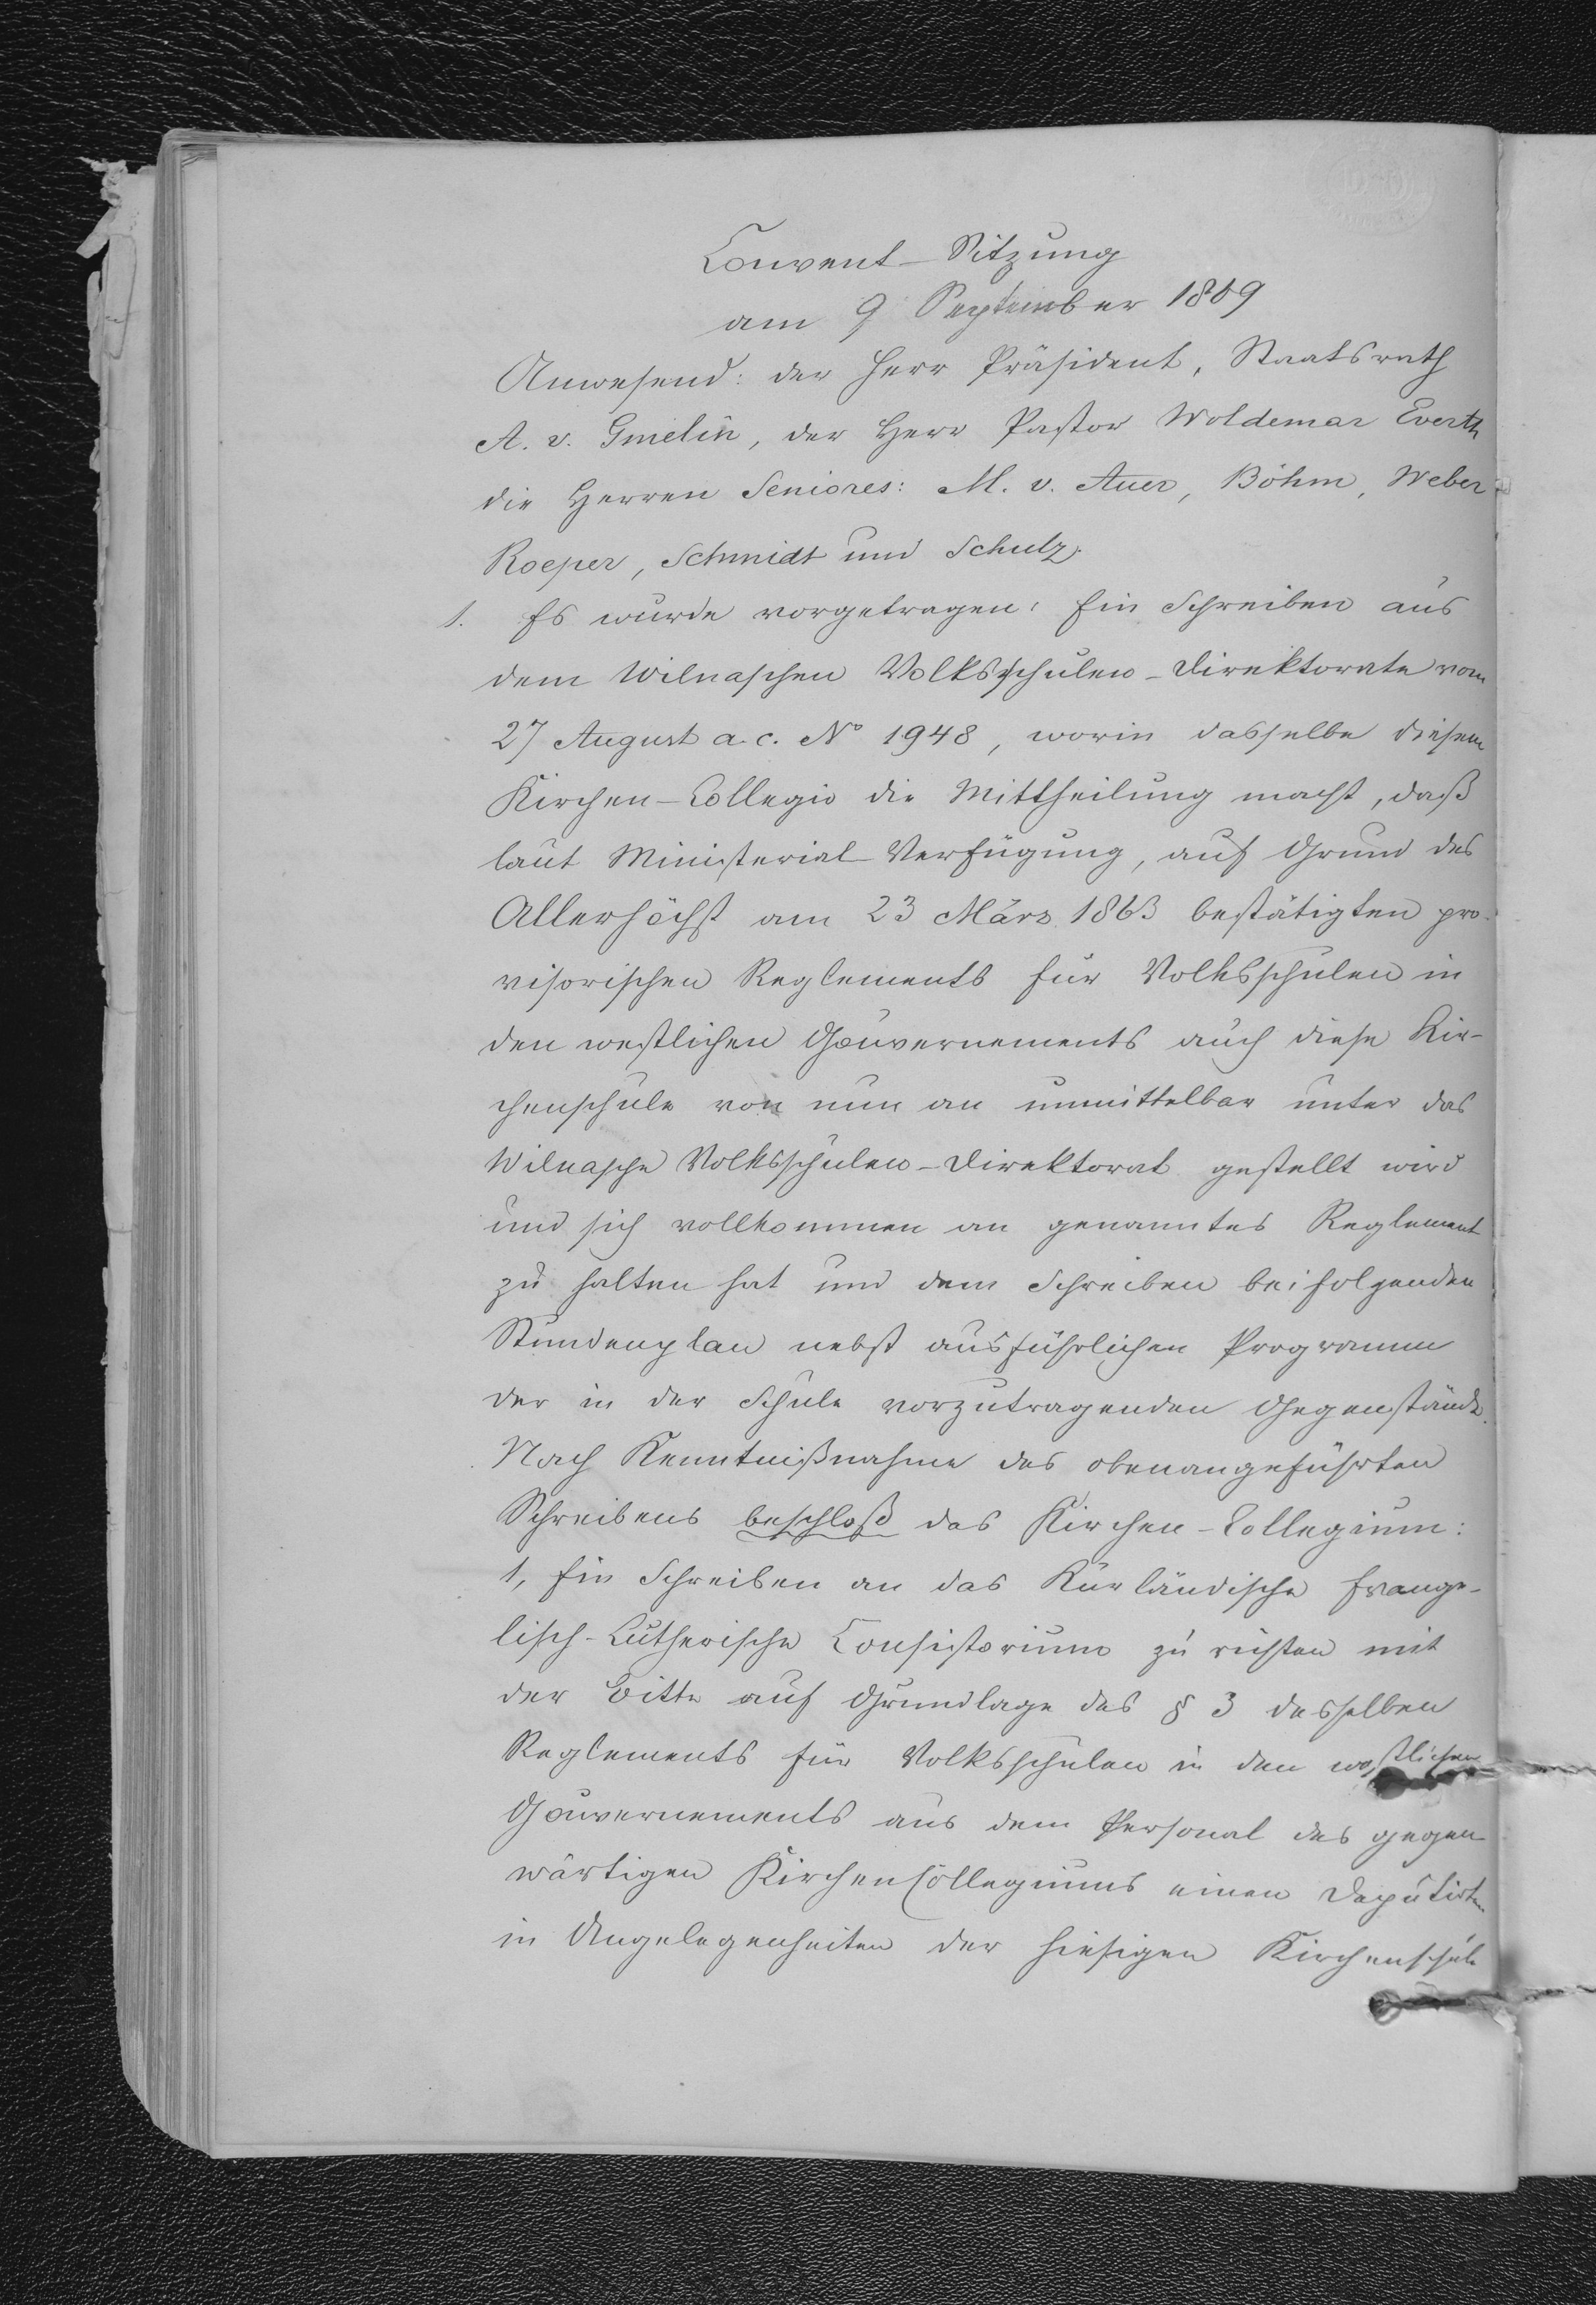 Convent-Sitzung
am 9 September 1869
Anwesend: der Herr Präsident, Staatsrath
A. v. Gmelin, der Herr Pastor Woldemar Everth
die Herren Seniores: M. v. Auer, Böhm, Weber
Roeper, Schmidt und Schulz.
1. Es wurde vorgetragen: Ein Schreiben aus
dem Wilnaschen Volksschulen-Direktorate vom
27 August a. c. No 1948, worin dasselbe diesem
Kirchen-Collegio die Mittheilung macht, daß
laut Ministerial-Verfügung, auf Grund des
Allerhöchst am 23 März 1863 bestätigten pro-
visorischen Reglements für Volksschulen in
den westlichen Gouvernements auch diese Kir-
chenschule von nun an unmittelbar unter das
Wilnasche Volksschulen-Direktorat gestellt wird
und sich vollkommen an genanntes Reglement
zu halten hat und dem Schreiben beifolgenden
Stundenplan nebst ausführlichen Programm
der in der Schule vorzutragenden Gegenstände.
Nach Kenntnißnahme des obenangeführten
Schreibens beschloß das Kirchen-Collegium:
1, Ein Schreiben an das Kurländische Evange-
lisch-Lutherische Consistorium zu richten mit
der Bitte auf Grundlage des § 3 desselben
Reglements für Volksschulen in den westlichen
Gouvernements aus dem Personal des gegen-
wärtigen Kirchencollegiums einen Deputirten
in Angelegenheiten der hiesigen Kirchenschule